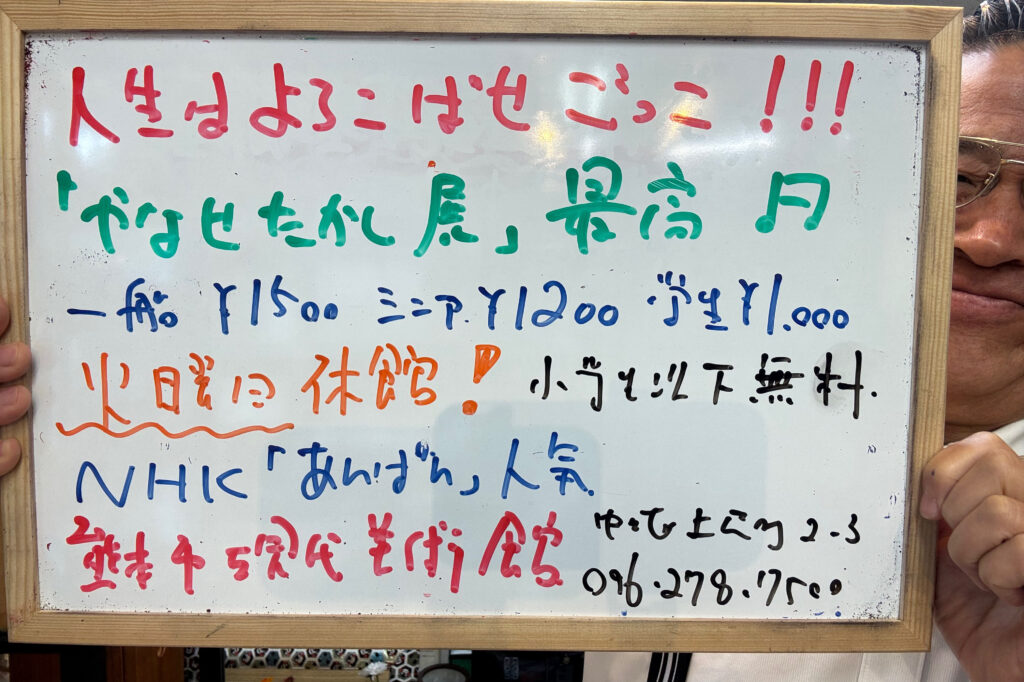 人生はよろこばせごっこ!!!
「やなせたかし展」最高♬
一般 ¥1500 シニア.¥1200 学生¥1.000
火曜日休館! 小学生以下無料.
NHK「あんぱん」人気.
熊本市現代美術館 中央区上通町2-3
096.278.7500